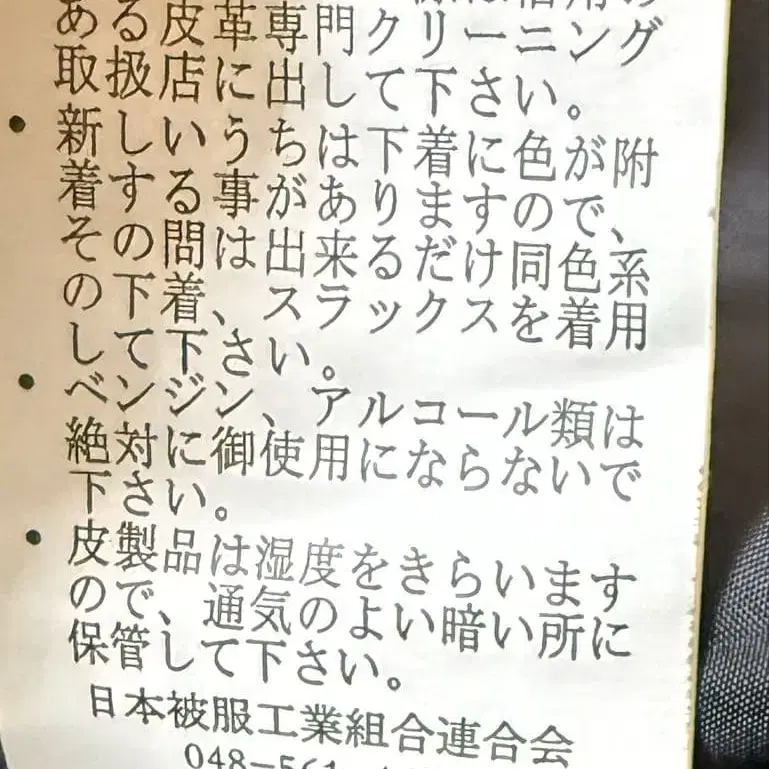 ある皮革専門クリーニング
取扱店に出して下さい。
• 新しいうちは下着に色が附
着する事がありますので、
その問は出来るだけ同色系
の下着、スラックスを着用
して下さい。
• ベンジン、アルコール類は
絶対に御使用にならないで
下さい。
• 皮製品は湿度をきらいます
ので、通気のよい暗い所に
保管して下さい。
日本被服工業組合連合会
048-561-